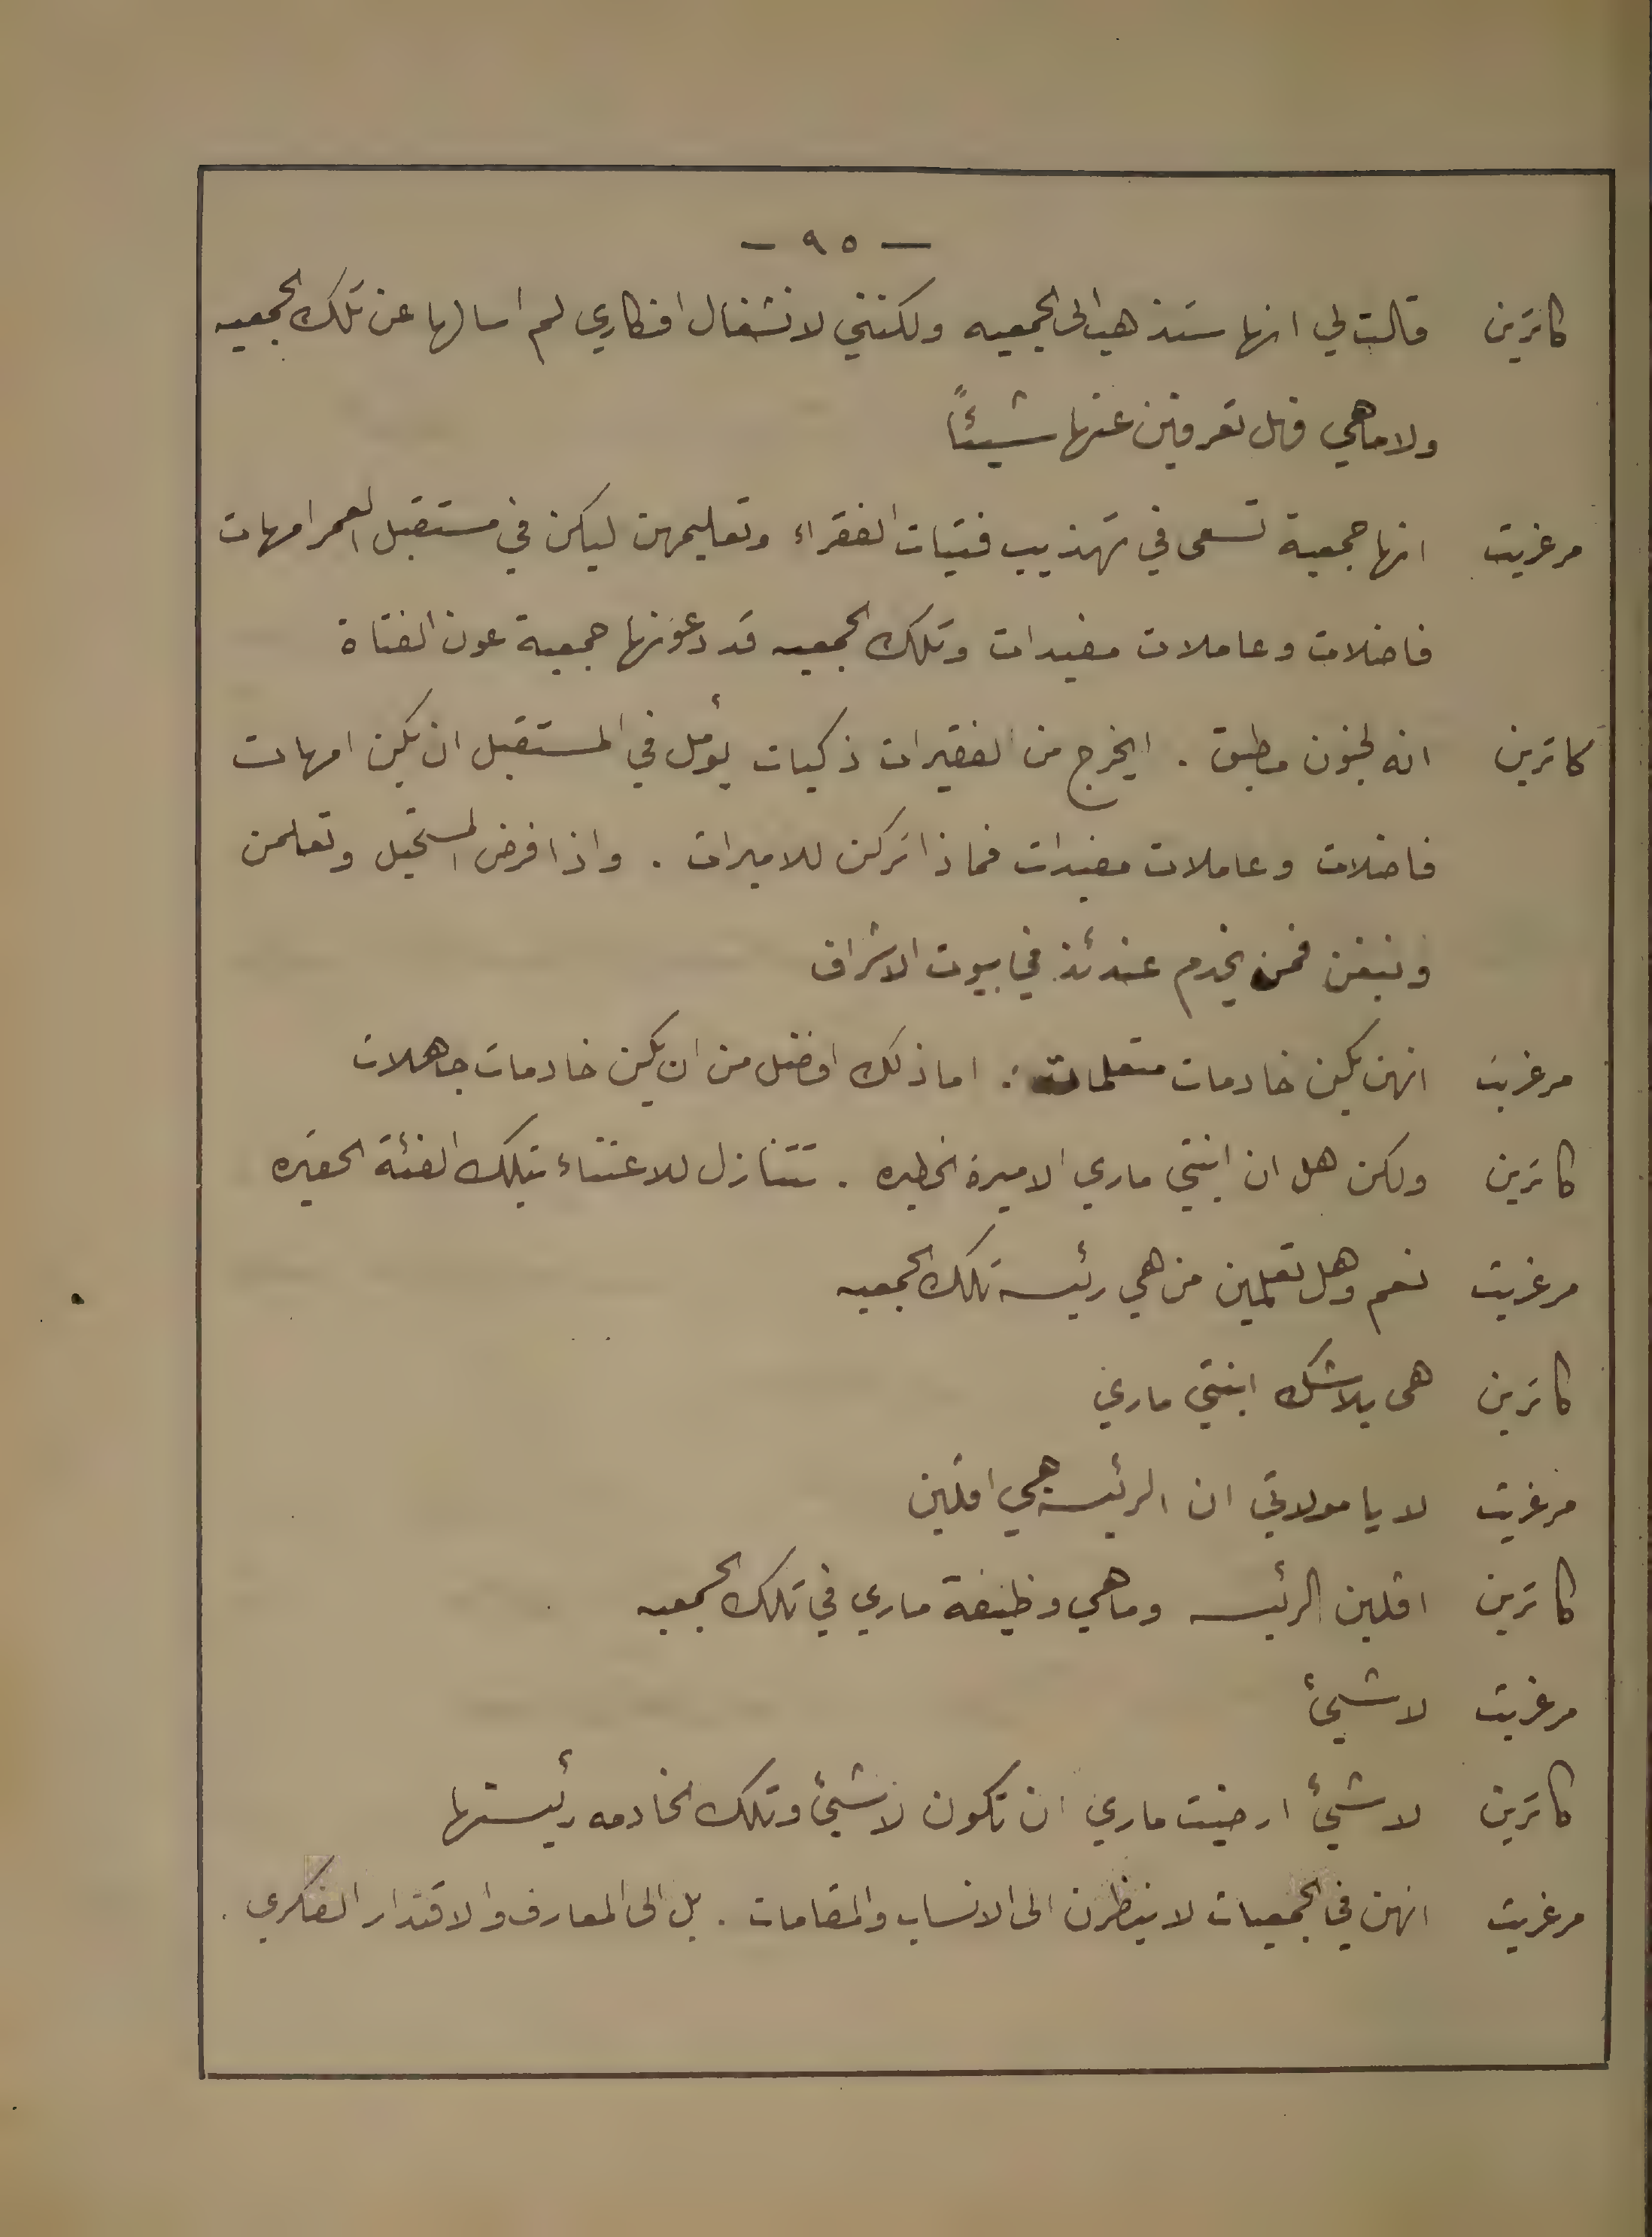 — ٩٥ —
كاترين قالت لي انها ستذهب الى الجمعيه ولكنني لانشغال افكاري لم اسالها عن تلك الجمعيه
ولا ماهي فهل تعرفين عنها شيئاً
مرغريت انها جمعية تسعى في تهذيب فتيات الفقراء وتعليمهن ليكن في مستقبل العمر امهات
فاضلات وعاملات مفيدات وتلك الجمعيه قد دعونها جمعية عون الفتاة
كاترين انه لجنون مطبق . ايخرج من الفقيرات ذكيات يؤمل في المستقبل ان يكن امهات
فاضلات وعاملات مفيدات فماذا تركن للاميرات . واذا فرض المستحيل وتعلمن
ونبغن فمن يخدم عندئذ في بيوت الاشراف
مرغريت انهن يكن خادمات متعلمات . اما ذلك افضل من ان يكن خادمات جاهلات
كاترين ولكن هل ان ابنتي ماري الاميرة الخطيره . تتنازل للاعتناء بتلك الفئة الحقيره
مرغريت نعم وهل تعلمين من هي رئيسه تلك الجمعيه
كاترين هي بلاشك ابنتي ماري
مرغريت لا يا مولاتي ان الرئيسه هي افلين
كاترين افلين الرئيسه وماهي وظيفة ماري في تلك الجمعيه
مرغريت لا شيئ
كاترين لا شيئ ارضيت ماري ان تكون لا شيئ وتلك الخادمه رئيستها
مرغريت انهن في الجمعيات لا ينظرن الى الانساب والمقامات . بل الى المعارف والاقتدار الفكري .